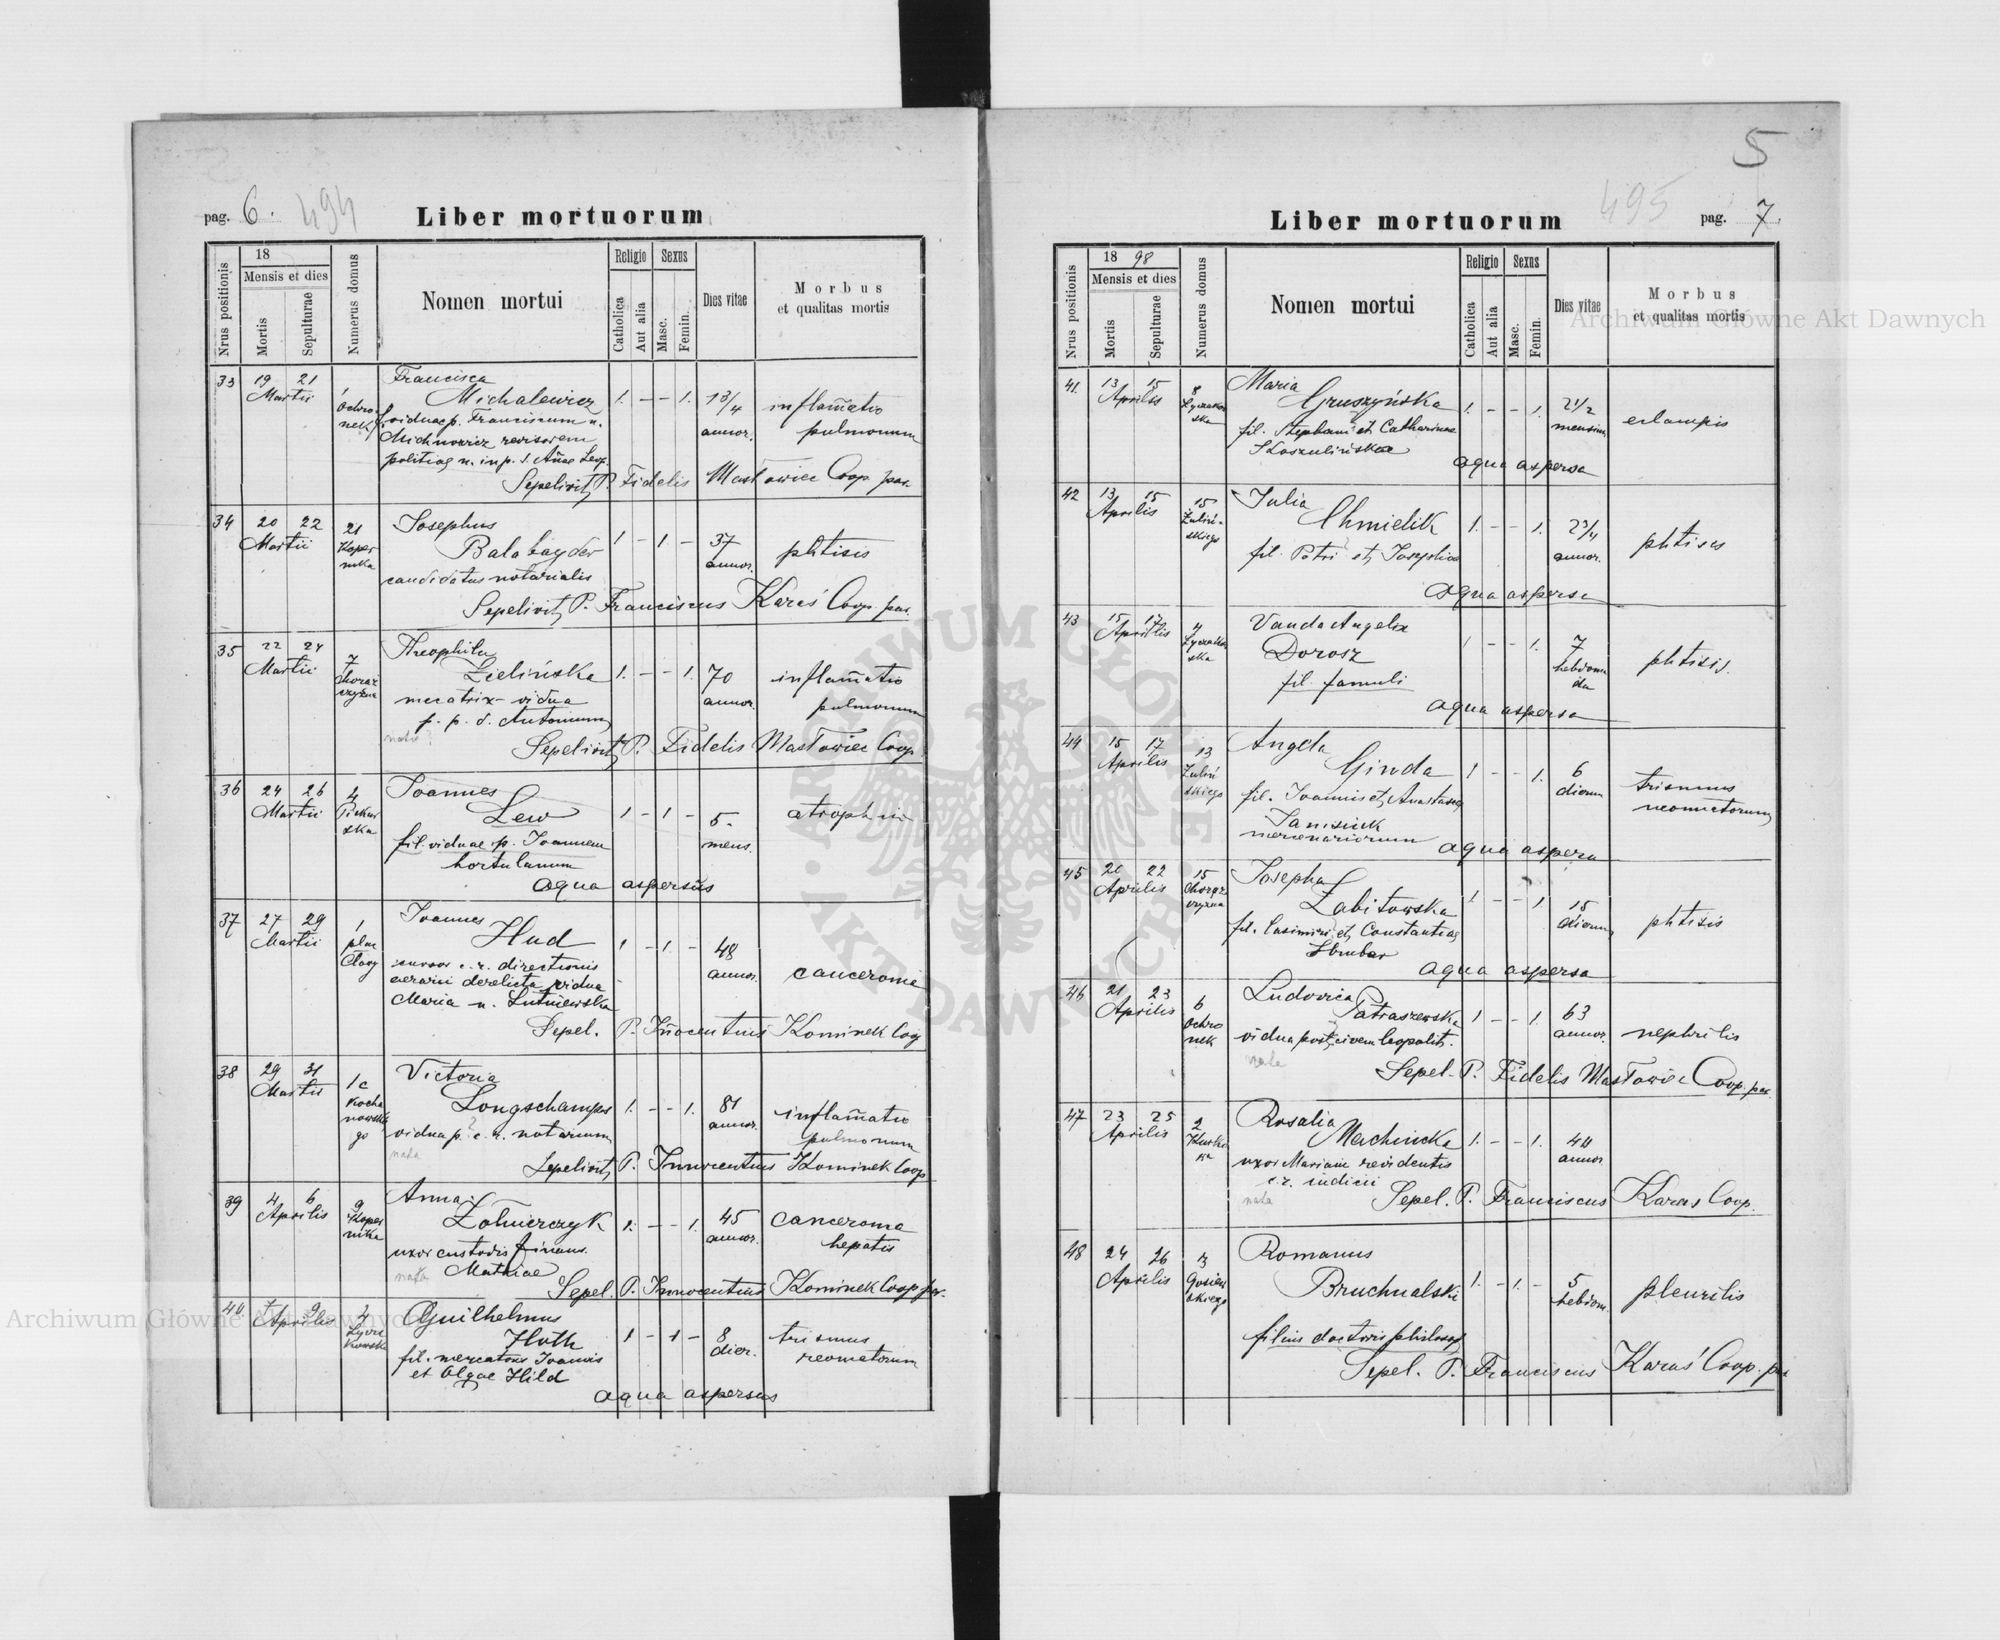 pag. 6. 494
Liber mortuorum
Nrus positionis
18
Mensis et dies
Mortis
Sepulturae
Numerus domus
Nomen mortui
Religio
Catholica
Aut alia
Sexus
Masc.
Femin.
Dies vitae
Morbus
et qualitas mortis
33 19 21 Martii 1 Ochronek
Francisca
Michalewicz 1. – – 1. 1 3/4 annor. inflam̄atio pulmonum
viduae p. Franciscum
revisorem
politiae n. in p. S. Annae Leop.
Sepelivit P. Fidelis Masłowiec Coop. par.
34 20 22 Martii 21 Kopernika
Josephus
Balabayder 1 – 1. – 37 annor. phtisis
candidatus notarialis
Sepelivit P. Franciscus Karaś Coop. par.
35 22 24 Martii 7 Chorążczyzna
Theophila
Zielińska 1. – – 1. 70 annor. inflam̄atio pulmonum
vidua
p. p. d. Antonium
Sepelivit P. Fidelis Masłowiec Coop.
36 24 26 Martii 4 Piekarska
Joannes
Lew 1 – 1 – 5 mens. atrophia
fil. viduae p. Joannem
hortulanum
aqua aspersus
37 27 29 Martii 1 plac Cłowy
Joannes
Hud 1 – 1. – 48 annor. canceroma
cursor c. r. directionis
aerarii derelicta vidua
Maria n. Lutniewska
Sepel. P. Inocentius Kominek Coop
38 29 31 Martii 1c Kochanowskiego
Victoria
Longschamps 1. – – 1. 81 annor. inflam̄atio pulmonum
vidua p. c. r. notarium
nata
Sepelivit P. Innocentius Kominek Coop
39 4 6 Aprilis 9 Kopernika
Anna
Żołnierczyk 1. – – 1. 45 annor. canceroma hepatis
uxor custodis finans.
nata Mathiae
Sepel. P. Innocentius Kominek Coop. par.
40 7 9 Aprilis 4 Łyczakowska
Guilhelmus
Huth 1 – 1 – 8 dier. trismus neonatorum
fil. mercatoris Joannis
et Olgae Hild
aqua aspersus
5
495
Liber mortuorum
pag. 7.
Nrus positionis
18 98
Mensis et dies
Mortis
Sepulturae
Numerus domus
Nomen mortui
Religio
Catholica
Aut alia
Sexus
Masc.
Femin.
Dies vitae
Morbus
et qualitas mortis
41. 13 15 Aprilis 8 Łyczakowska
Maria
Gruszyńska 1. – – 1. 2 1/2 mensium eclampis
fil. Stephani et Catharinae
Skoszulińska
aqua aspersa
42 13 15 Aprilis 15 Zulińskiego
Julia
Chmielik 1. – – 1. 2 3/4 annor. phtises
fil. Petri et Josephae
aqua aspersa
43 15 17 Aprilis 4 Łyczakowska
Vanda Angela
Dorosz 1 – – 1. 7 hebdomada phtisis.
fil. famuli
aqua aspersa
44 15 17 Aprilis 13 Zulińskiego
Angela
Ginda 1 – – 1. 6 dierum trismus neonatorum
fil. Joannis et Anastasiae
mercenariorum
aqua aspera
45 20 22 Aprilis 15 Chorążczyzna
Josepha
Żabitowska 1 – – 1 15 dierum phtisis
fil. Casimiri et Constantiae
Hombar
aqua aspersa
46 21 23 Aprilis 6 Ochronek
Ludovica
Patraszewska 1 – – 1. 63 annor. nephritis
vidua post civem leopolit.
nata
Sepel. P. Fidelis Masłowiec Coop. par.
47 23 25 Aprilis 2
Rosalia
Machnicka 1. – – 1. 44 annor.
uxor Mariani revidentis
c. r. iudicii
nata
Sepel. P. Franciscus Karaś Coop.
48 24 26 Aprilis 3 Gosiewskiego
Romanus
Bruchnalski 1. – 1. – 5 hebdom. pleuritis
filius doctoris philosof.
Sepel. P. Franciscus Karaś Coop. par
Archiwum Główne Akt Dawnych
Archiwum Główne Akt Dawnych
ARCHIWUM GŁÓWNE AKT DAWNYCH